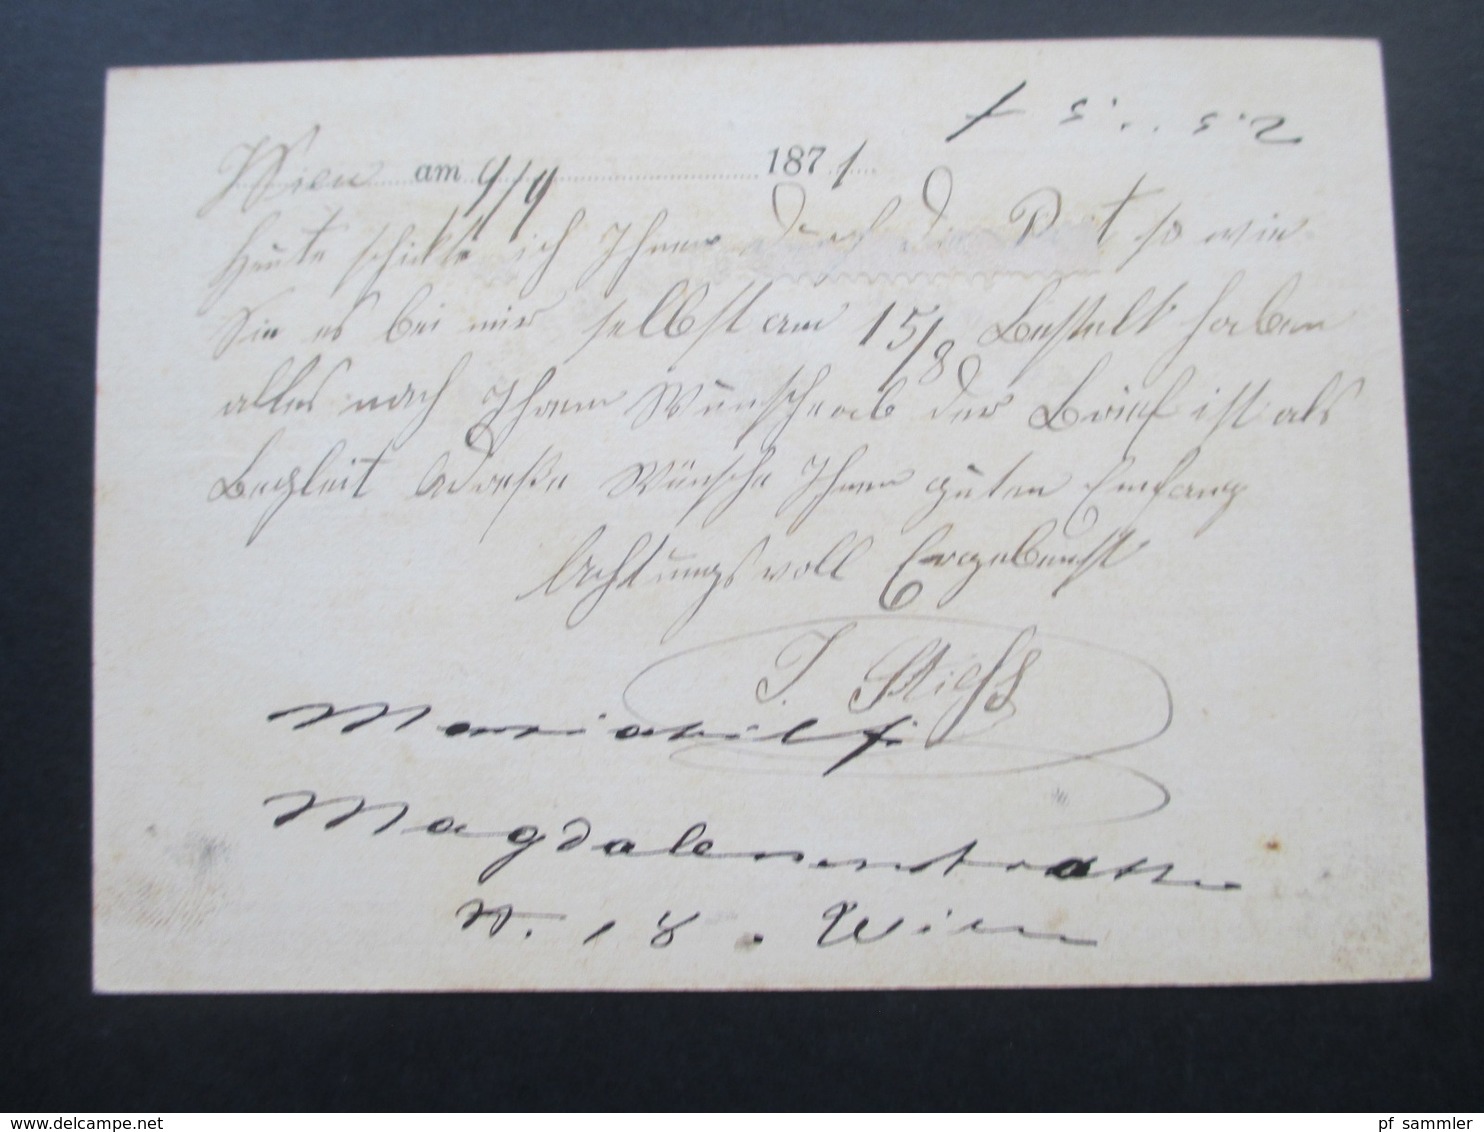 Wien am 9/9 1871.
Heute schickte ich Ihnen durch die Post so wie
Sie es bei mir selbst am 15/8 Bestelt haben
alles nach Ihrem Wunsche ab der Brief ist als
Begleit Adreße Wünsche Ihnen guten Empfang
Achtungsvoll Ergebenst
J.
Mariahilf
Magdalenenstrasse
N. 18. Wien
pf sammler